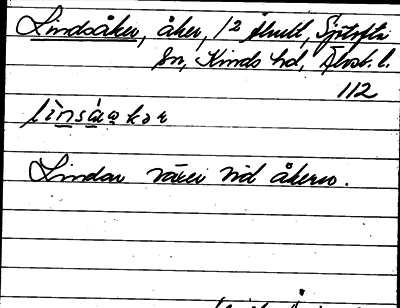 Lindsåker, åker, 1/2 Ahult, Sjötofta
sn, Kinds hd, Älvsb. l.
112
lìnsåakər
Lindar växer vid åkern.